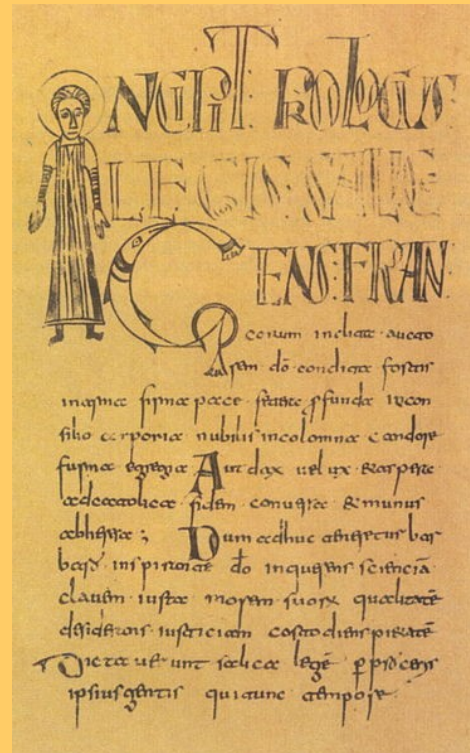 INCIPIT PROLOGUS
LEGIS SALICE
GENS FRAN
corum inclita aucto
rem do condita fortis
in arma firma pace fetere profunda in con
silio corporia nubilis incolomna candore
forma egregia Aut dax uelux et aspere
ad catolica fidem conuersa et munus
ab heresa ; Dum adhuc teneretur bar
bara inspirante do inquerens sciencia
clauem iusta morem suorum qualitatē
desiderans iusticiam costodiens pietatē
Dictauerunt salica legē per proceris
ipsius gentis qui tunc tempore